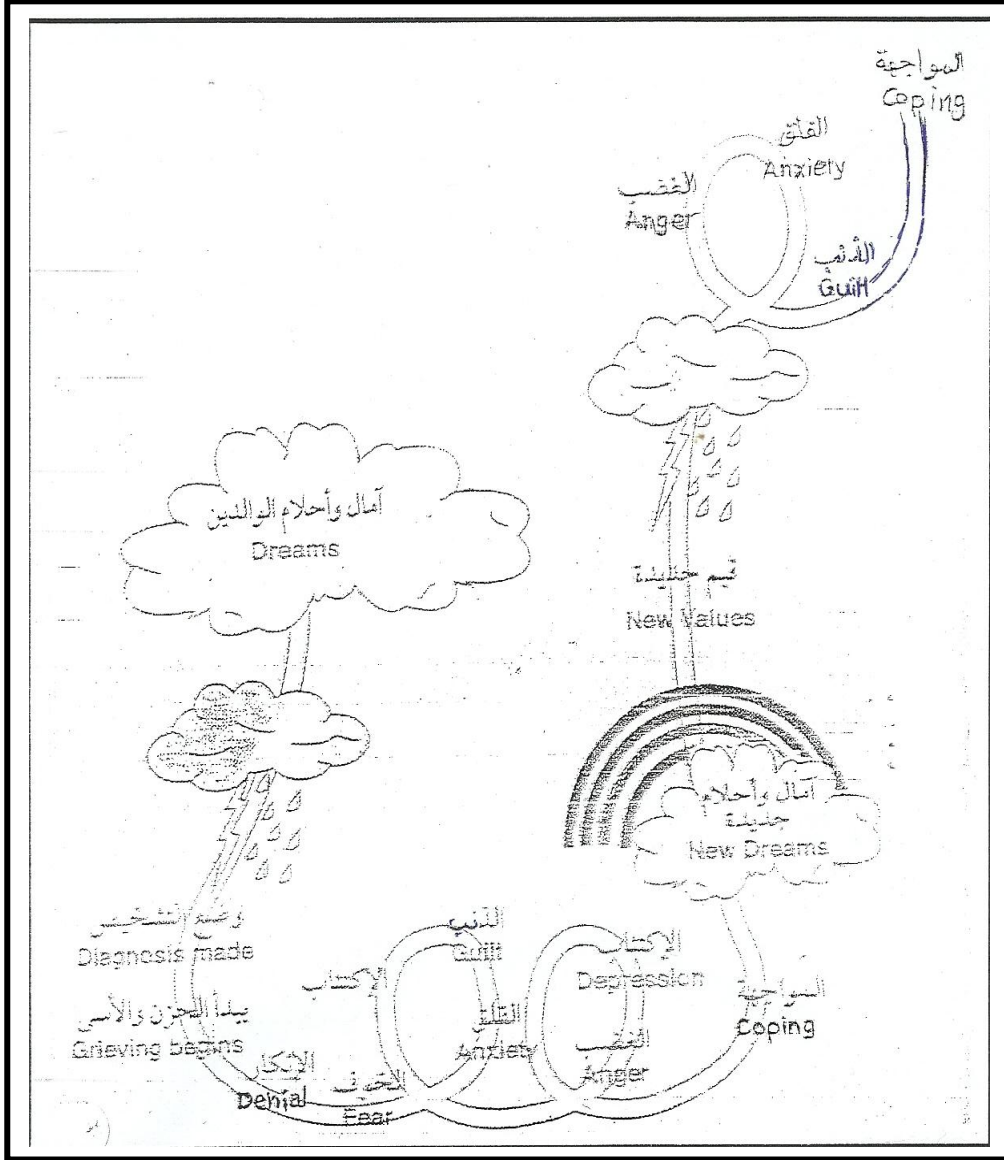 المواجهة
Coping
القلق
Anxiety
الغضب
Anger
الذنب
Guilt
آمال وأحلام الوالدين
Dreams
قيم جديدة
New Values
آمال وأحلام
جديدة
New Dreams
وضع التشخيص
Diagnosis made
يبدأ الحزن والأسى
Grieving begins
الإنكار
Denial
الخوف
Fear
الإكتئاب
الذنب
Guilt
القلق
Anxiety
الإكتئاب
Depression
الغضب
Anger
المواجهة
Coping